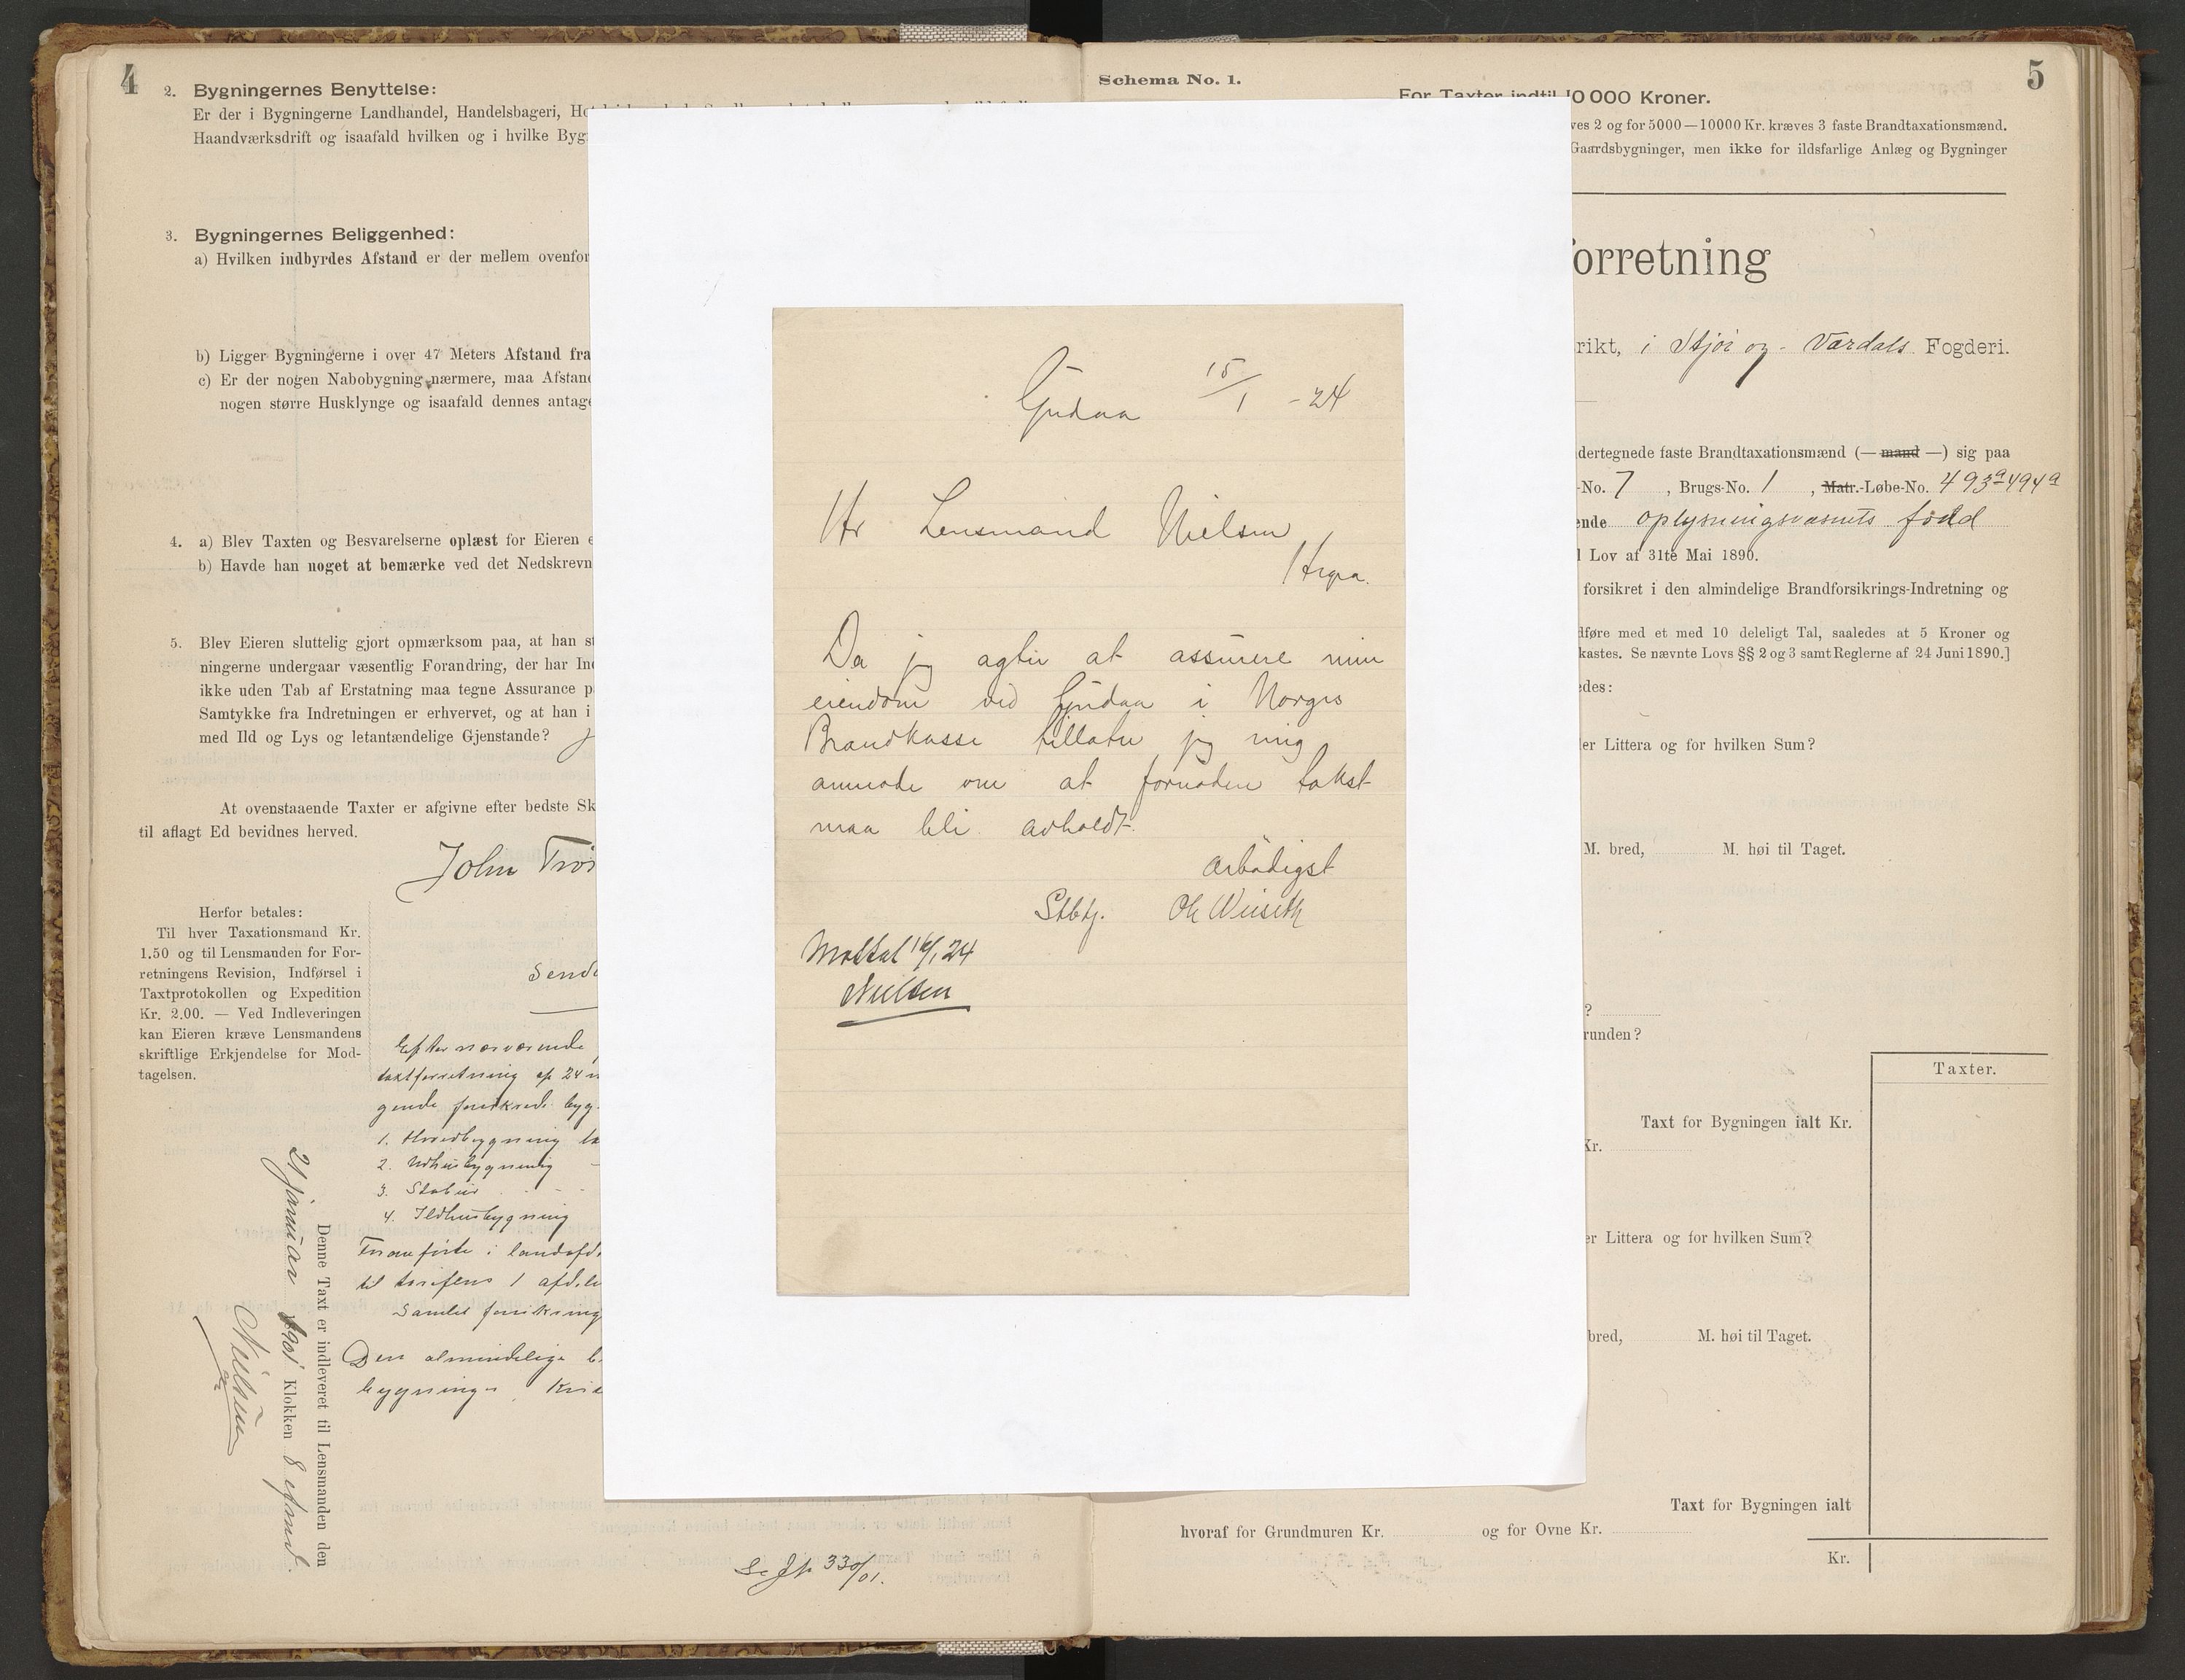 4
2. Bygningernes Benyttelse:
Er der i Bygningerne Landhandel, Handelsbageri,
Haandværksdrift og isaafald hvilken og i hvilke
3. Bygningernes Beliggenhed:
a) Hvilken indbyrdes Afstand er der mellem
b) Ligger Bygningerne i over 47 Meters Afstand fra
c) Er der nogen Nabobygning nærmere, maa
nogen større Husklynge og isaafald dennes
4. a) Blev Taxten og Besvarelserne oplæst for Eieren
b) Havde han noget at bemærke ved det
5. Blev Eieren sluttelig gjort opmærksom paa, at han
ningerne undergaar væsentlig Forandring, der har
ikke uden Tab af Erstatning maa tegne Assurance
Samtykke fra Indretningen er erhvervet, og at han i
med Ild og Lys og letantændelige Gjenstande?
At ovenstaaende Taxter er afgivne efter bedste
til aflagt Ed bevidnes herved.
John
Herfor betales:
Til hver Taxationsmand Kr.
1.50 og til Lensmanden for For-
retningens Revision, Indførsel i
Taxtprotokollen og Expedition
Kr. 2.00. — Ved Indleveringen
kan Eieren kræve Lensmandens
skriftlige Erkjendelse for Mod-
tagelsen.
Efter nærværende
taxtforretning af 24
gende forsikrede
1. Hovedbygning
2. Udhusbygning
3. Stabur
4. Ildhusbygning
til tarifens 1
Samlet
Den almindelige
Denne Taxt er indleveret til Lensmanden den
21 januar 1901 Klokken 8
Nielsen
Gudaa 15/1 -24
Hr Lensmand Nielsen
Hegra.
Da jeg agter at assurere min
eiendom ved Gudaa i Norges
Brandkasse tillater jeg mig
anmode om at fornøden takst
maa bli avholdt.
Ærbødigst
Stbtj. Ole Wiseth
Mottat 16/1 24
Nielsen
Schema No. 1.
5
For Taxter indtil 10 000 Kroner.
2 og for 5000—10000 Kr. kræves 3 faste Brandtaxationsmænd.
Gaardsbygninger, men ikke for ildsfarlige Anlæg og Bygninger
orretning
rikt, i Stjør og Værdals Fogderi.
dertegnede faste Brandtaxationsmænd (— mand —) sig paa
-No. 7, Brugs-No. 1, Matr.-Løbe-No. 493a 494a
ende oplysningsvæsnets fond
Lov af 31te Mai 1890.
forsikret i den almindelige Brandforsikrings-Indretning og
dføre med et med 10 deleligt Tal, saaledes at 5 Kroner og
kastes. Se nævnte Lovs §§ 2 og 3 samt Reglerne af 24 Juni 1890.]
edes:
er Littera og for hvilken Sum?
M. bred, M. høi til Taget.
?
runden?
Taxter.
Taxt for Bygningen ialt Kr.
Kr.
er Littera og for hvilken Sum?
bred, M. høi til Taget.
Taxt for Bygningen ialt
hvoraf for Grundmuren Kr. og for Ovne Kr.
Kr.